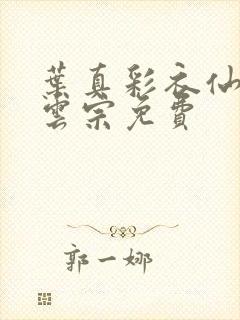 葉真彩衣仙
雲宗免費
郭一娜